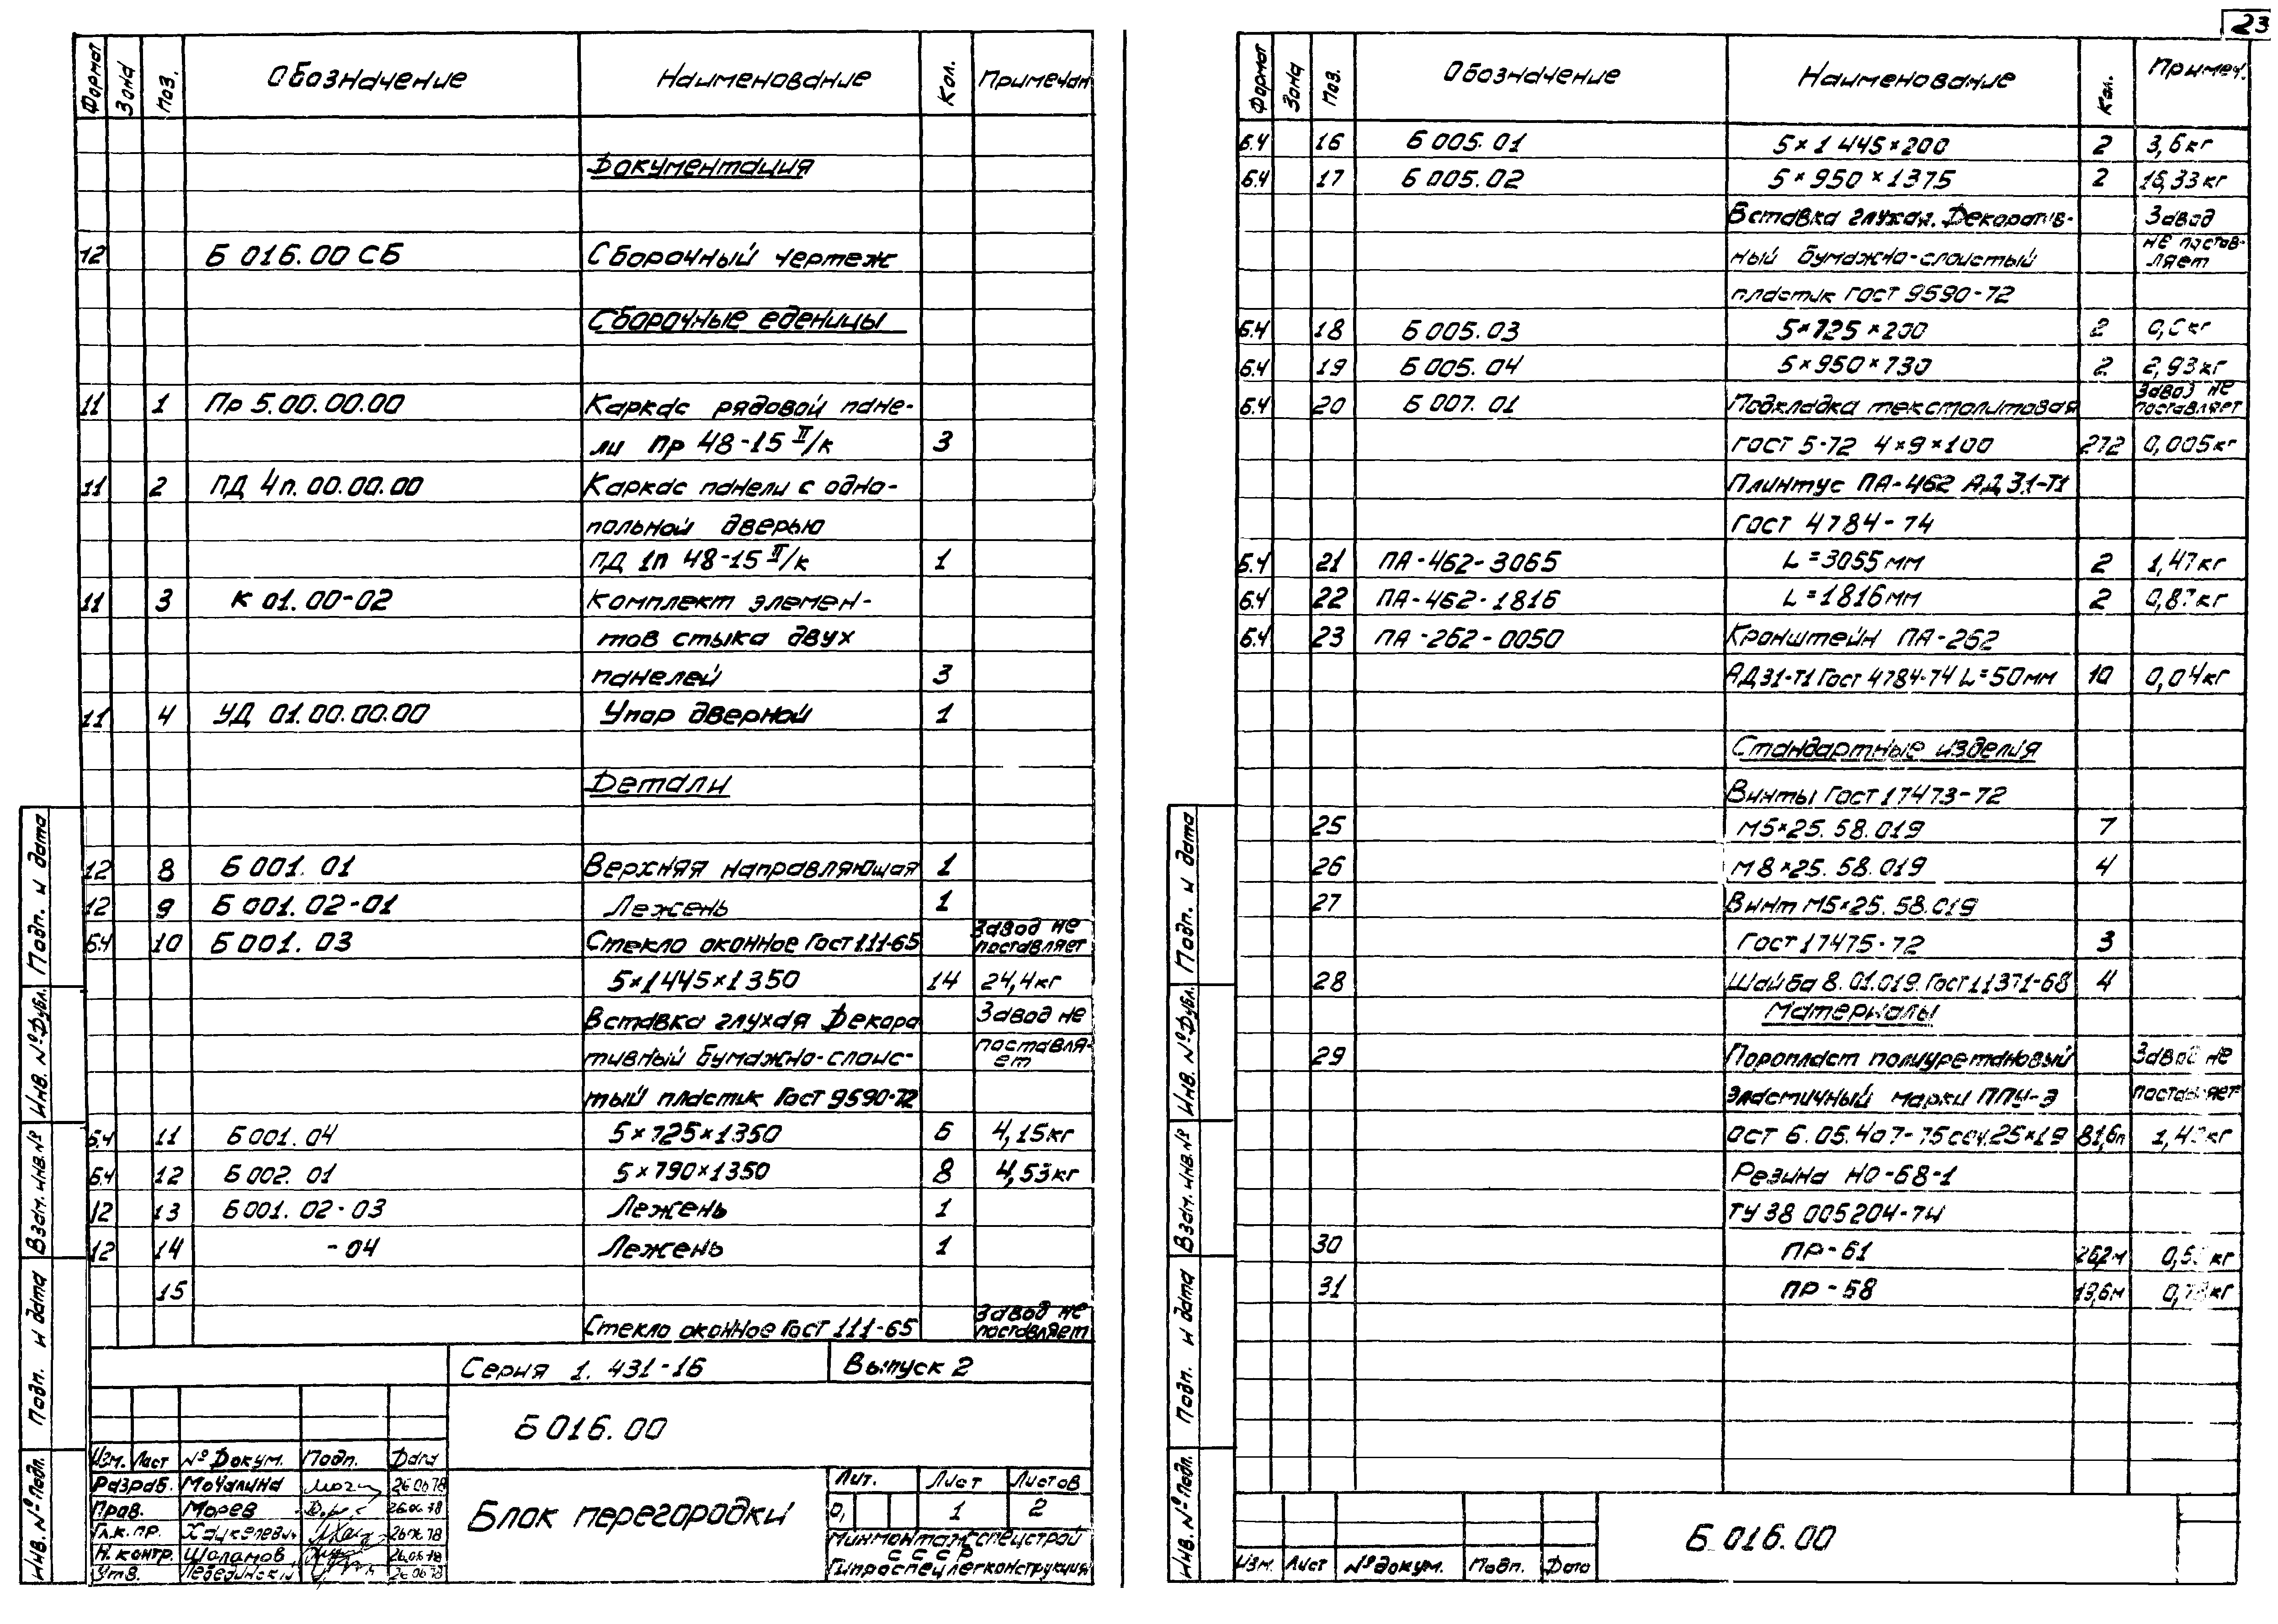 Формат Зона Поз. Обозначение Наименование Кол. Примечан
Документация
12 Б 016.00 СБ Сборочный чертеж
Сборочные еденицы
11 1 Пр 5.00.00.00 Каркас рядовой пане-
ли Пр 48-15 II/к 3
11 2 ПД 4п.00.00.00 Каркас панели с одно-
польной дверью
ПД 1п 48-15 II/к 1
11 3 К 01.00-02 Комплект элемен-
тов стыка двух
панелей 3
11 4 УД 01.00.00.00 Упор дверной 1
Детали
12 8 Б 001.01 Верхняя направляющая 1
12 9 Б 001.02-01 Лежень 1
Завод не
Б.Ч 10 Б 001.03 Стекло оконное Гост 111-65 поставляет
5×1445×1350 14 24,4кг
Вставка глухая Декора Завод не
тивный бумажно-слоис- поставля-
ет
тый пластик Гост 9590-72
Б.Ч 11 Б 001.04 5×725×1350 6 4,15кг
Б.Ч 12 Б 002.01 5×790×1350 8 4,53кг
12 13 Б 001.02-03 Лежень 1
12 14 -04 Лежень 1
15
Завод не
Стекло оконное Гост 111-65 поставляет
Серия 1.431-16 Выпуск 2
Б 016.00
Изм. Лист № Докум. Подп. Дата
Разраб. Мочалина 26.06.78
Пров. Морев 26.06.78
Гл.к.пр. Хацкелевич 26.06.78
Н.контр. Шаламов 26.06.78
Утв. Лебединский 26.06.78
Блок перегородки
Лит. Лист Листов
1 2
Минмонтажспецстрой
СССР
Гипроспецлегконструкция
Подп. и дата
Инв. № дубл.
Взам. инв. №
Подп. и дата
Инв. № подл.
23
Формат Зона Поз. Обозначение Наименование Кол. Примеч.
Б.Ч 16 Б 005.01 5×1445×200 2 3,6кг
Б.Ч 17 Б 005.02 5×950×1375 2 16,33кг
Вставка глухая. Декоратив- Завод
ный бумажно-слоистый не постав-
ляет
пластик Гост 9590-72
Б.Ч 18 Б 005.03 5×725×200 2
Б.Ч 19 Б 005.04 5×950×730 2 2,93кг
Завод не
Б.Ч 20 Б 007.01 Подкладка текстолитовая поставляет
Гост 5-72 4×9×100 272 0,005кг
Плинтус ПА-462 АД 31-Т1
Гост 4784-74
Б.Ч 21 ПА-462-3065 L=3055мм 2 1,47кг
Б.Ч 22 ПА-462-1816 L=1816мм 2
Б.Ч 23 ПА-262-0050 Кронштейн ПА-262
АД31-Т1 Гост 4784-74 L=50мм 10 0,04кг
Стандартные изделия
Винты Гост 17473-72
25 М5×25.58.019 7
26 М8×25.58.019 4
27 Винт М5×25.58.019
Гост 17475-72 3
28 Шайба 8.01.019 Гост 11371-68 4
Материалы
29 Поропласт полиуретановый Завод не
эластичный марки ППУ-Э поставляет
ОСТ 6.05.407-75 сеч.25×19 81,6п
Резина НО-68-1
ТУ 38 005204-74
30 ПР-61 26,2м
31 ПР-58 19,6м
Б 016.00
Изм. Лист № докум. Подп. Дата
Подп. и дата
Инв. № дубл.
Взам. инв. №
Подп. и дата
Инв. № подл.